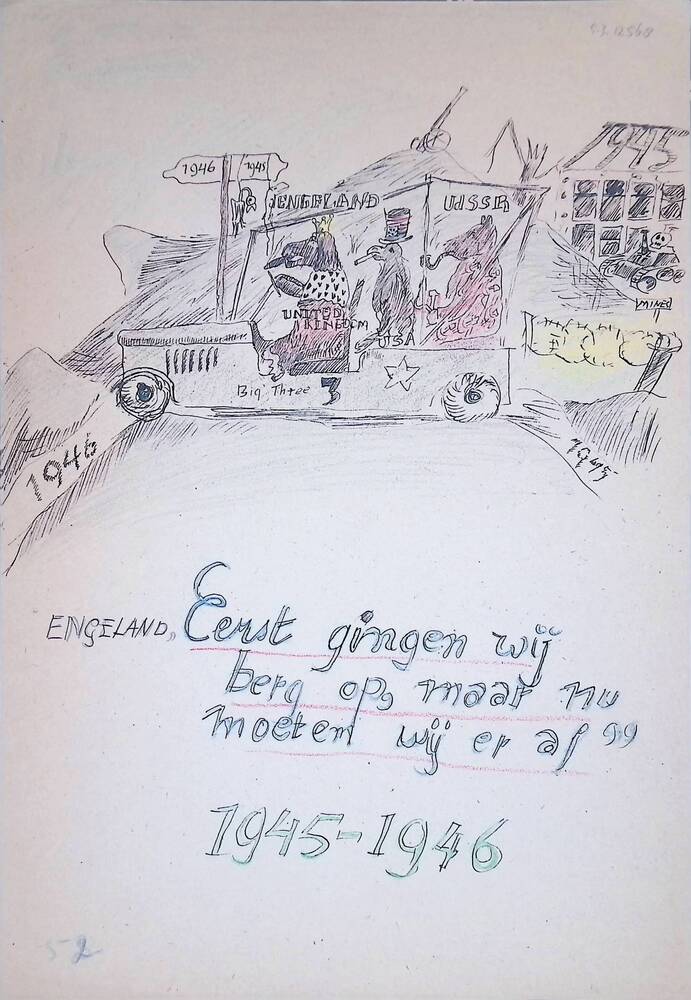 1946
1945
1945
ENGELAND
UdSSR
UNITED
KINGDOM
USA
MINED
Big Three 3
1946
1945
ENGELAND „Eerst gingen wij
berg op, maar nu
moeten wij er af"
1945-1946
52